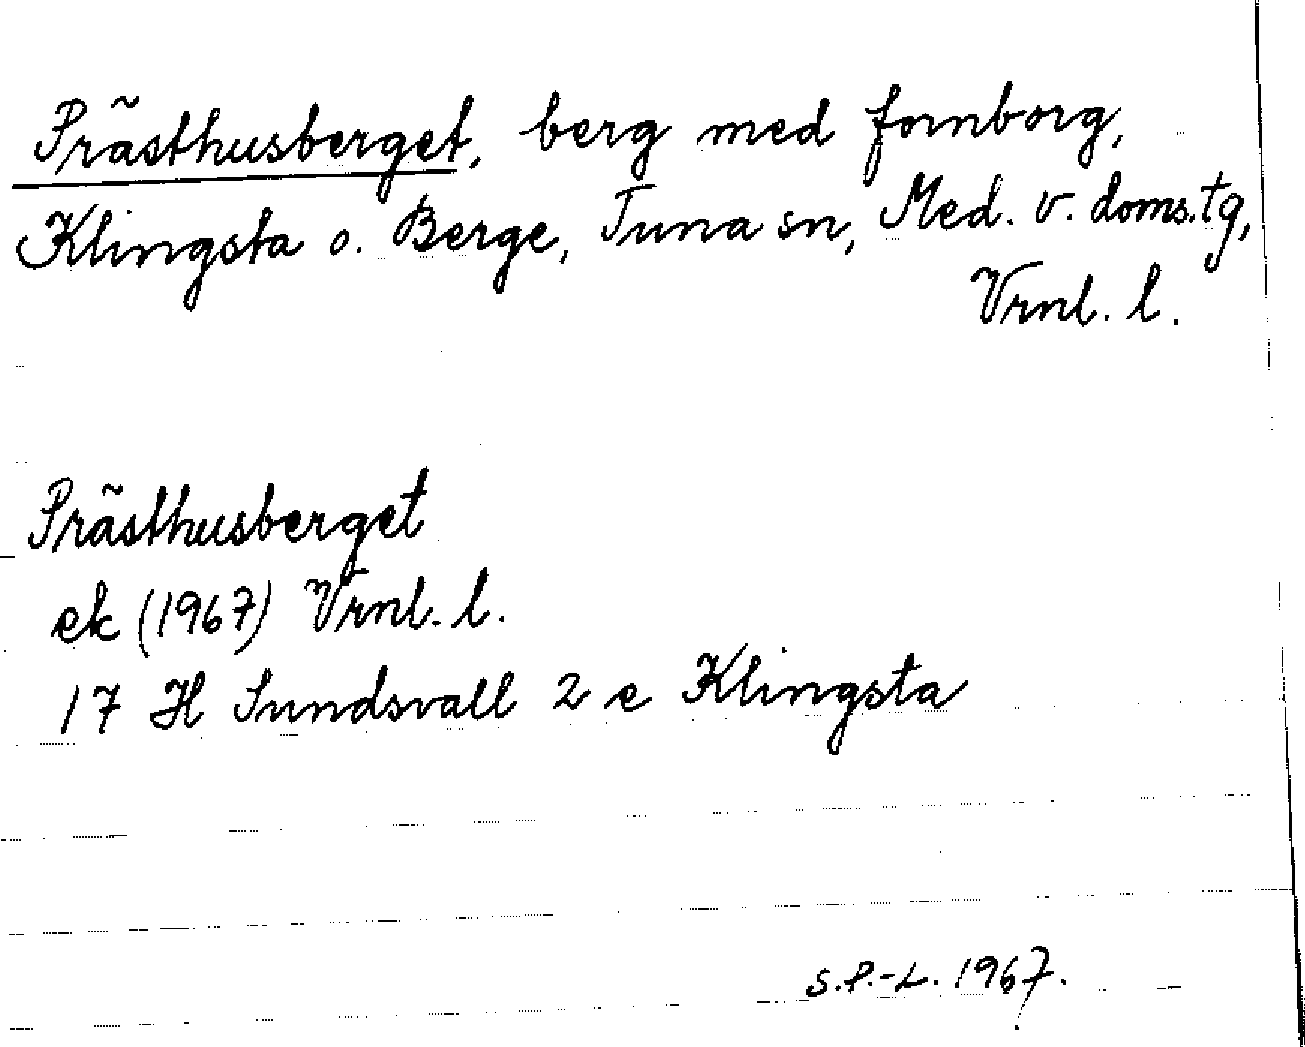 Prästhusberget, berg med fornborg,
Klingsta o. Berge, Tuna sn, Med. v. doms.tg,
Vrnl. l.
Prästhusberget
ek (1967) Vrnl. l.
17 H Sundsvall 2 e Klingsta
S.P.-L. 1967.